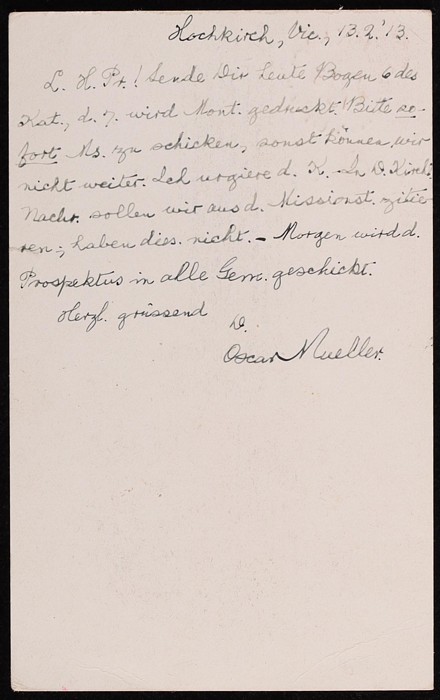 Hochkirch, Vic., 13.2.'13.
L. H. Pr.! Sende Dir heute Bogen 6 des
Kat., d. 7. wird Mont. gedruckt. Bitte so-
fort Ms. zu schicken, sonst können wir
nicht weiter. Ich urgiere d. K. In D. Kirchl.
Nachr. sollen wir aus d. Missionst. zitie-
ren; haben dies. nicht. – Morgen wird d.
Prospektus in alle Gem. geschickt.
Herzl. grüssend
D.
Oscar Mueller.